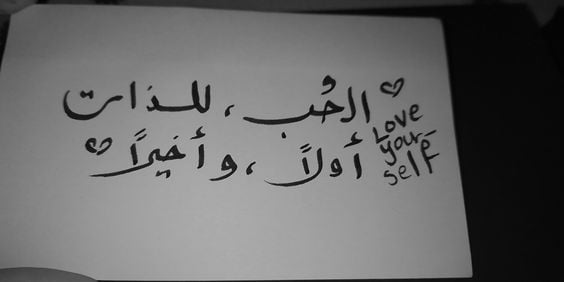 الحُب ، للذات
أولاً ، وأخيراً
Love
your-
self